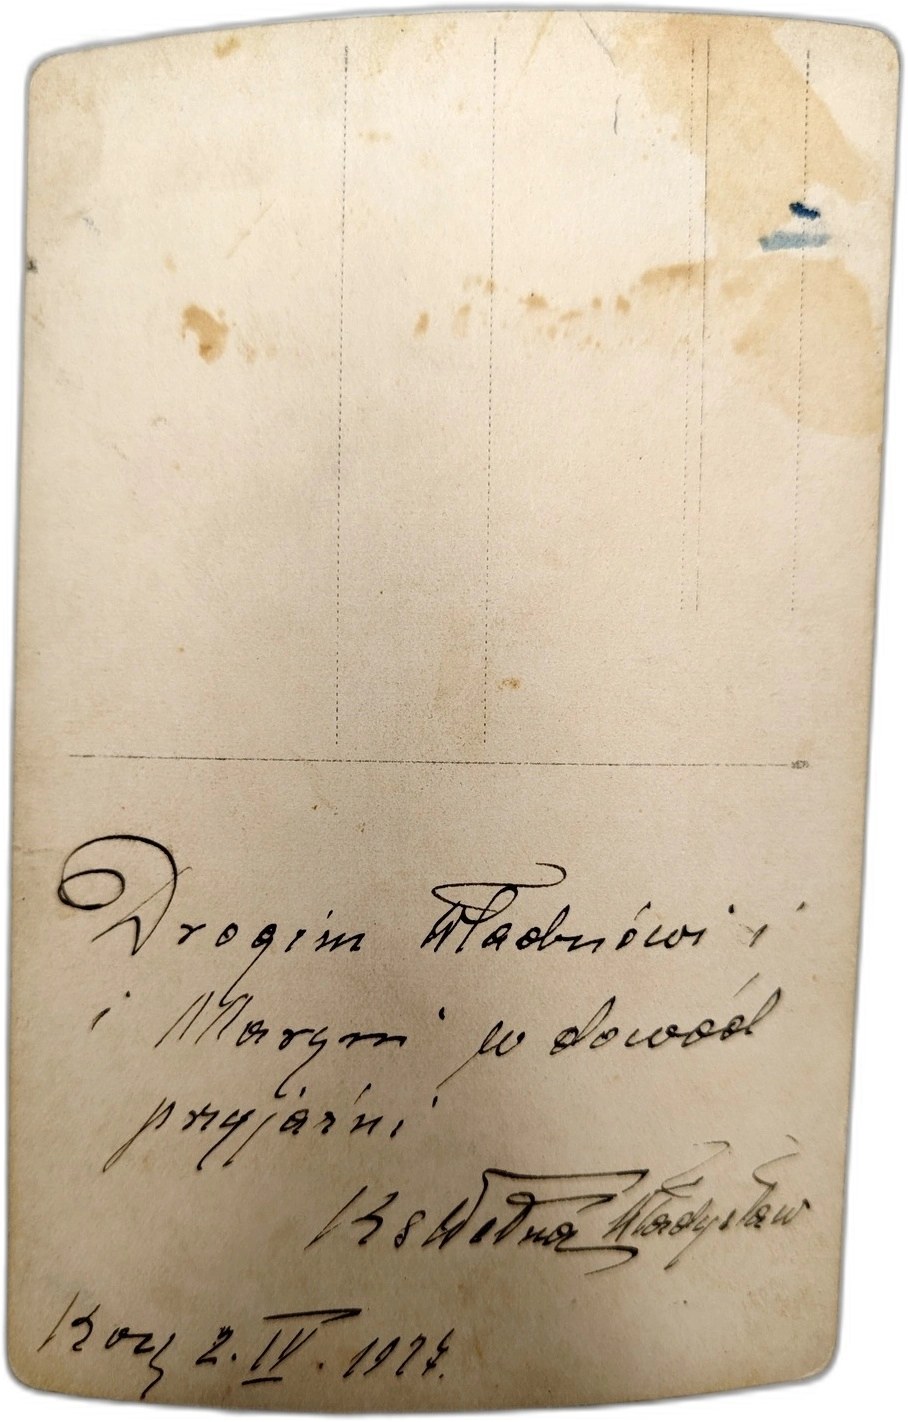 Drogim Władziowi i
i Maryni w dowód
przyjaźni
Ks Wełna Władysław
2. IV. 1927.